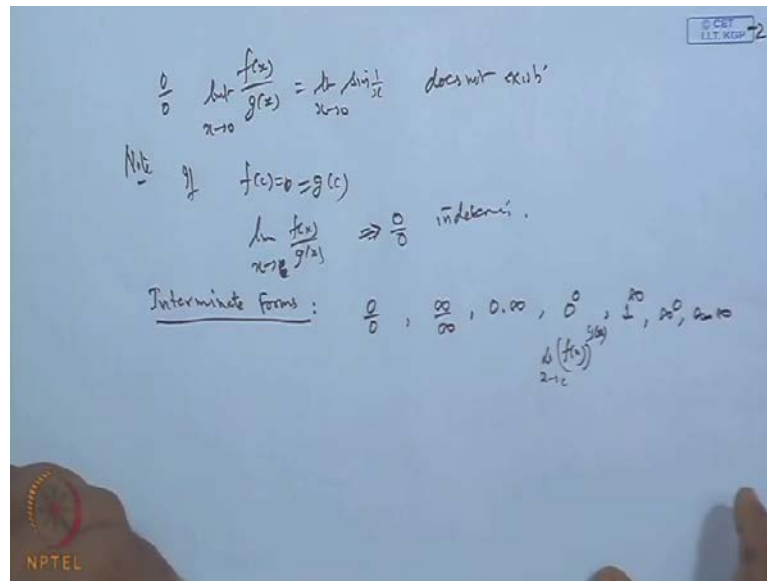 © CET
I.I.T. KGP
-2
0/0 lim x→0 f(x)/g(x) = lim x→0 sin 1/x does not exist
Note If f(c)=0=g(c)
lim x→c f(x)/g(x) ⇒ 0/0 indetermi.
Interminate Forms : 0/0 , ∞/∞ , 0.∞ , 0^0 , 1^∞ , ∞^0 , ∞-∞
lim x→c (f(x))^g(x)
NPTEL